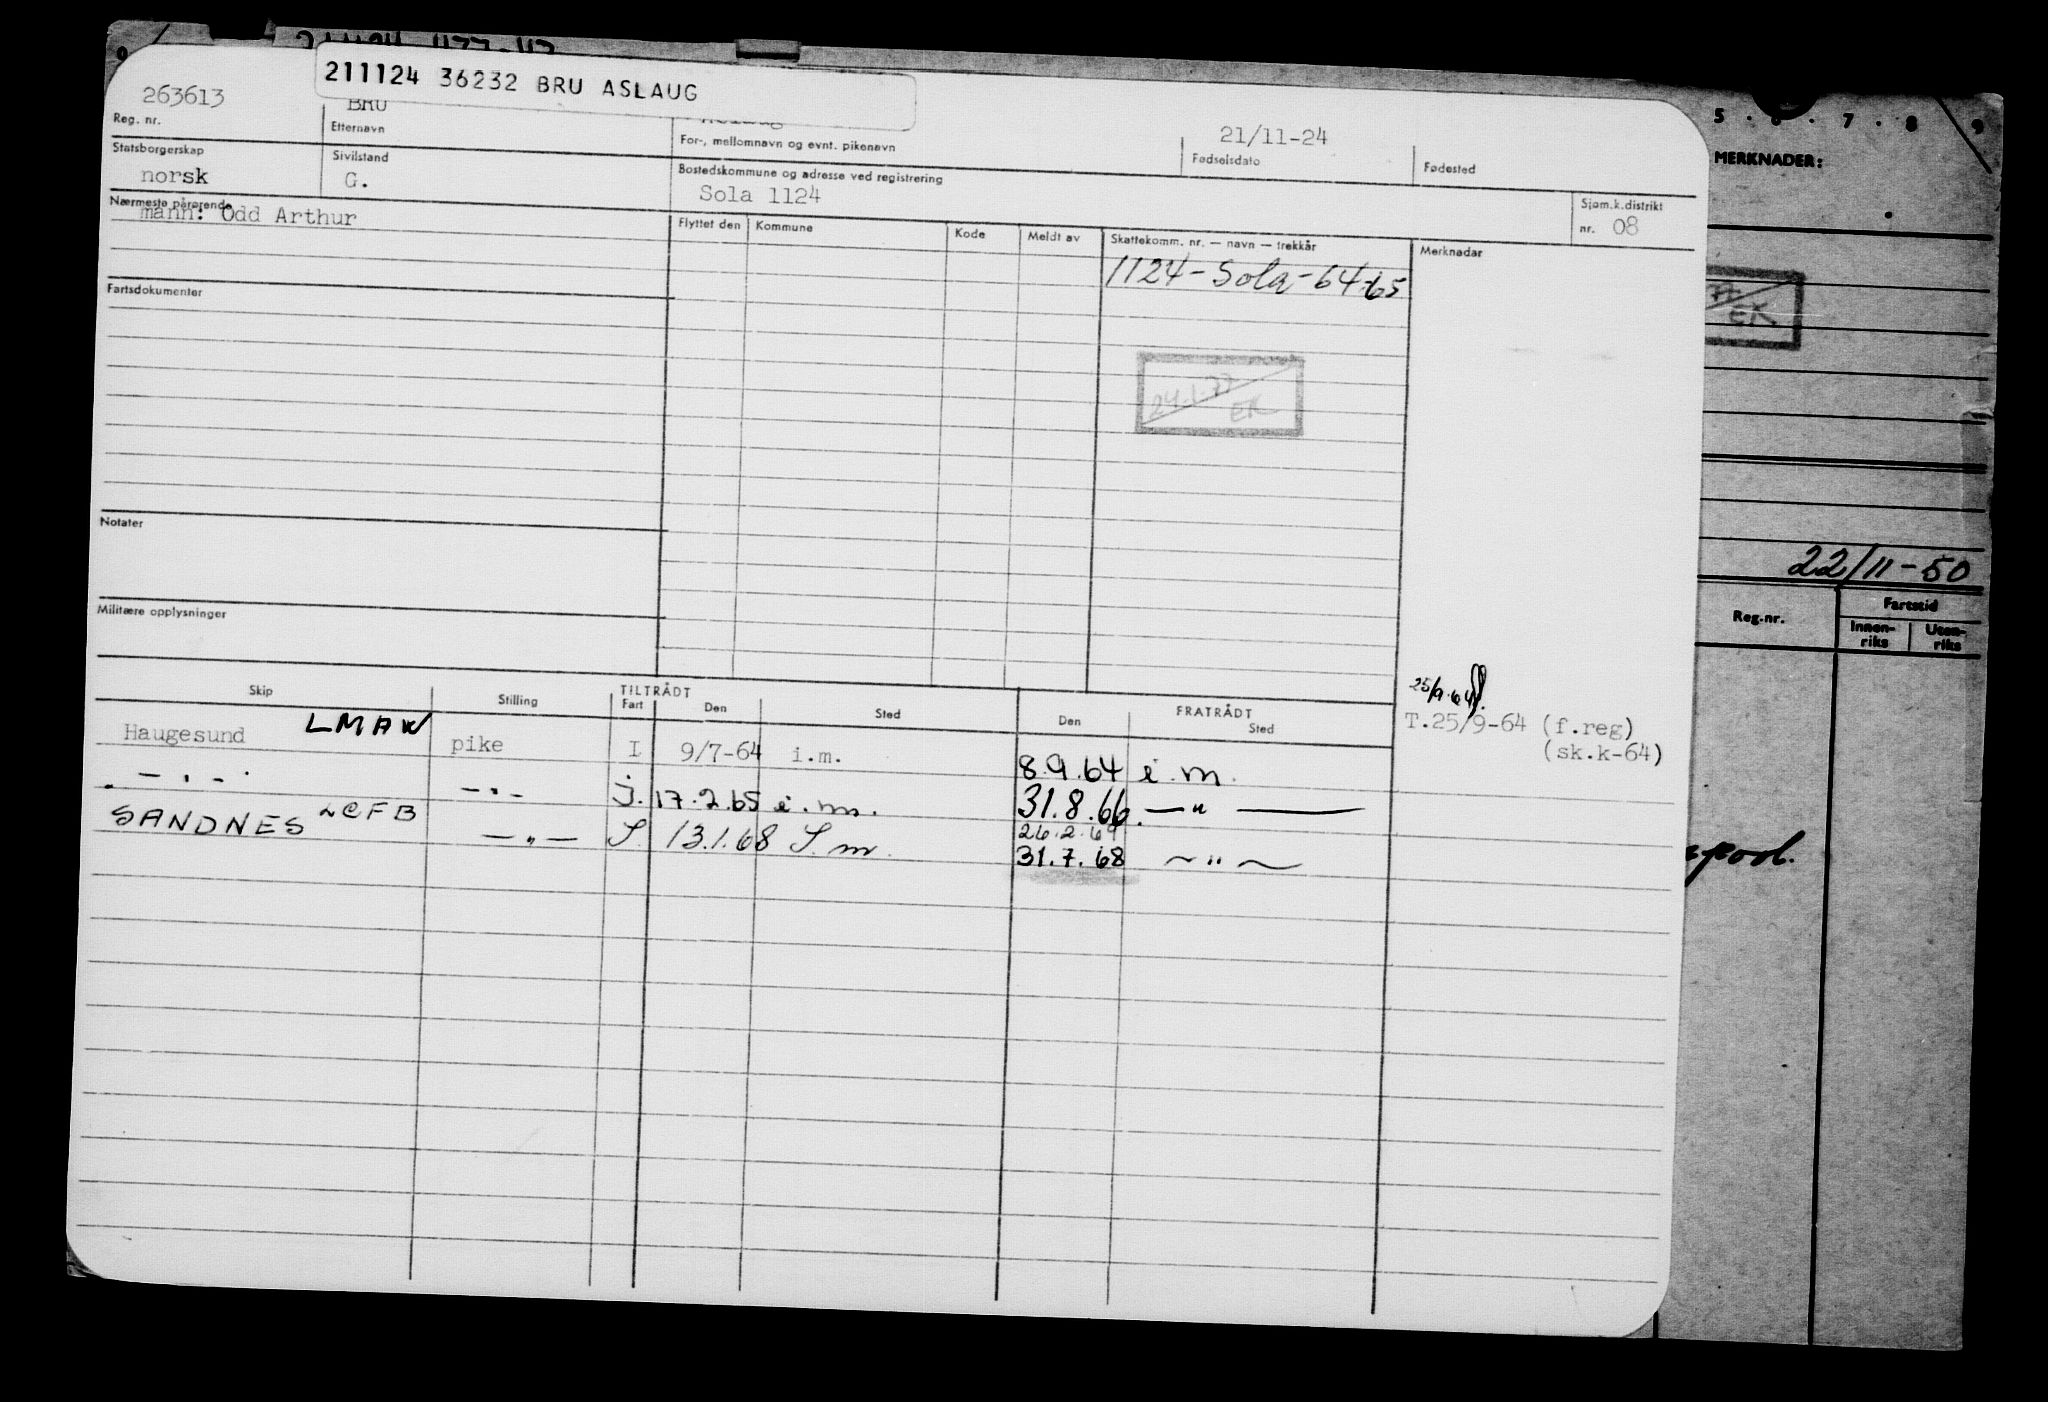 211124 36232 BRU ASLAUG
263613 BRU 21/11-24
Reg. nr. Etternavn For-, mellomnavn og evnt. pikenavn Fødselsdato Fødested
Statsborgerskap Sivilstand Bostedskommune og adresse ved registrering
norsk G. Sola 1124
Sjøm.k.distrikt
nr. 08
Nærmeste pårørende
mann: Odd Arthur
Flyttet den Kommune Kode Meldt av Skattekomm. nr. — navn — trekkår Merknader
1124-Sola-64-65
Fartsdokumenter
24.1.77
EK
Notater
Militære opplysninger
Skip Stilling TILTRÅDT FRATRÅDT
Fart Den Sted Den Sted
25/9.64
T.25/9-64 (f.reg)
(sk.k-64)
Haugesund LMAW pike I 9/7-64 i.m. 8.9.64 i.m.
- " - - " - j. 17.2.65 i.m. 31.8.66. — " —
SANDNES ~CFB — " — S. 13.1.68 S.m. 26.2.69
31.7.68 ~ " ~
5 . 6 . 7 . 8 9
MERKNADER:
EK
22/11-50
Reg.nr. Fartstid
Innen-
riks
Uten-
riks